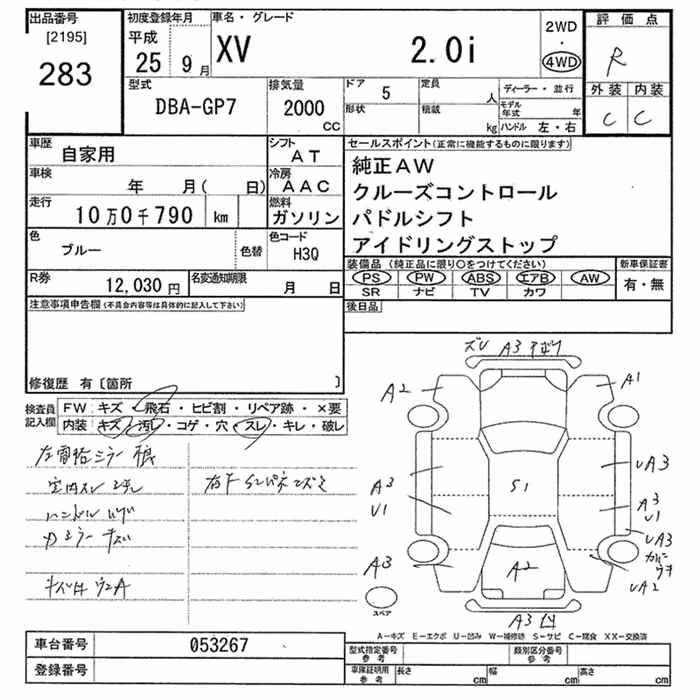 出品番号
[2195]
283
初度登録年月
平成
25 9 月
車名・グレード
XV 2.0i
2WD
・
4WD
評価点
R
外装 内装
C C
型式
DBA-GP7
排気量
2000
CC
ドア 5
形状
定員
人
積載
kg
ディーラー・並行
モデル年式 年
ハンドル 左・右
車歴 自家用
シフト AT
車検 年 月( 日)
冷房 AAC
走行 10万0千790 km
燃料 ガソリン
色 ブルー 色替
色コード H3Q
R券 12,030 円
名変通知期限 月 日
セールスポイント(正常に機能するものに限ります)
純正AW
クルーズコントロール
パドルシフト
アイドリングストップ
装備品(純正品に限り○をつけてください)
PS PW ABS エアB AW
SR ナビ TV カワ
新車保証書
有・無
後日品
注意事項申告欄(不具合内容等は具体的に記入して下さい)
修復歴 有〔箇所 〕
検査員記入欄
FW キズ・飛石・ヒビ割・リペア跡・×要
内装 キズ・汚れ・コゲ・穴・スレ・キレ・破レ
A3
A2
A1
A3
U1
S1
UA3
A3
U1
UA3
A3
A2
UA2
A3 凹
スペア
A-キズ E-エクボ U-凹み W-補修跡 S-サビ C-腐食 XX-交換済
車台番号 053267
登録番号
型式指定番号 参考
類別区分番号 参考
車庫証明用 参考 長さ cm 幅 cm 高さ cm